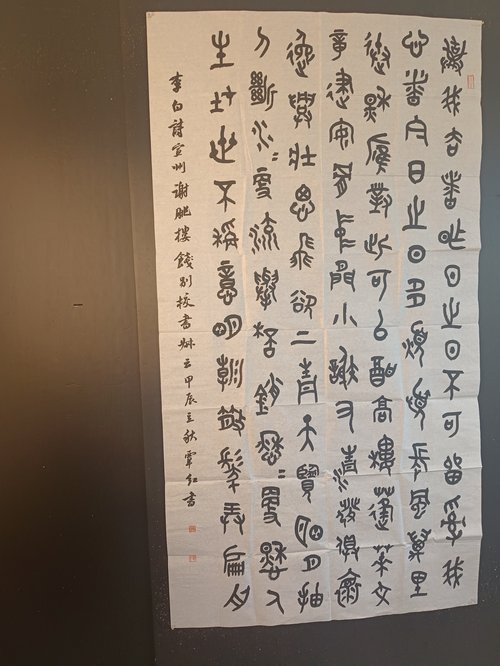 棄我去者昨日之日不可留亂我
心者今日之日多煩憂長風萬里
送秋雁對此可以酣高樓蓬萊文
章建安骨中間小謝又清發俱懷
逸興壯思飛欲上青天覽明月抽
刀斷水〻更流舉杯銷愁〻更愁人
生在世不稱意明朝散髮弄扁舟
李白詩宣州謝朓樓餞別校書叔云甲辰立秋覃紅書